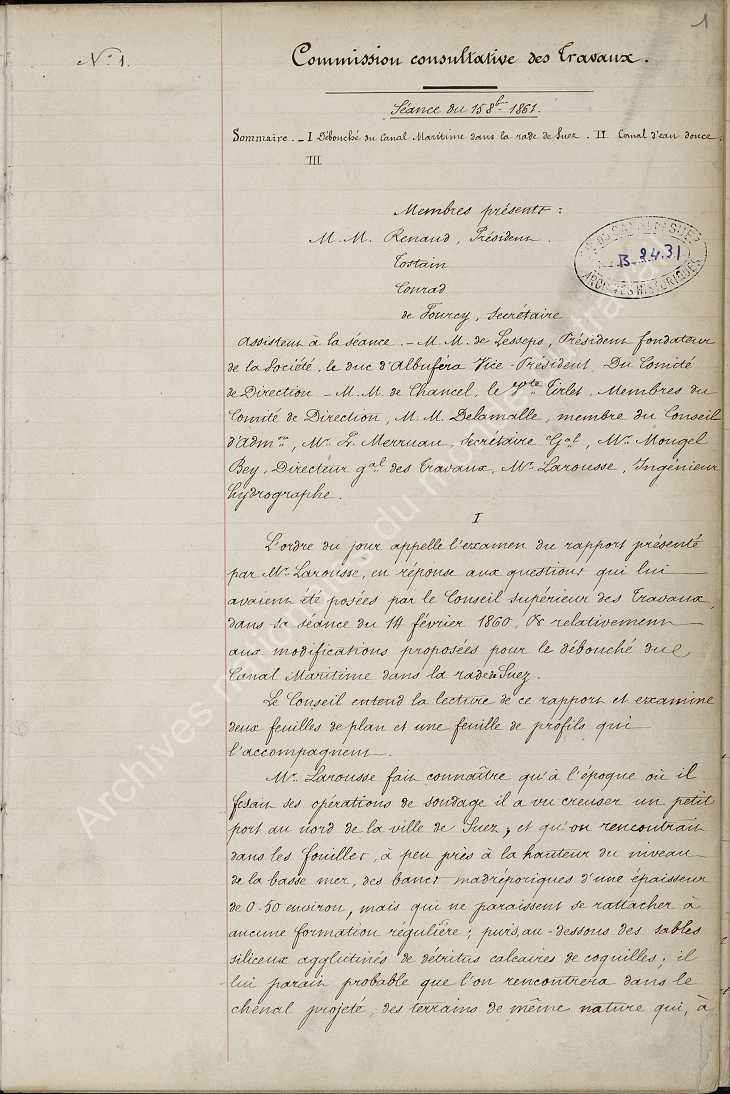 1
N° 1.
Commission consultative des Travaux.
Séance du 15 8bre 1861.
Sommaire. - I Débouché du Canal Maritime dans la rade de Suez. II Canal d'eau douce.
III
Membres présents :
M.M. Renaud, Président.
Tostain
Conrad
de Fourcy, Secrétaire
CIE DU CANAL DE SUEZ
B 24.31
ARCHIVES HISTORIQUES
Assistent à la séance. - M.M. de Lesseps, Président fondateur
de la Société, le duc d'Albuféra Vice-Président, Du Comité
de Direction - M.M. de Chancel, le Tirlet, Membres du
Comité de Direction, M.M. Delamalle, membre du Conseil
d'Admon, Mr. P. Merruau, Secrétaire Gal, Mr. Mougel
Bey, Directeur gal des Travaux, Mr Larousse, Ingénieur
hydrographe.
I
L'ordre du jour appelle l'examen du rapport présenté
par Mr. Larousse, en réponse aux questions qui lui
avaient été posées par le Conseil supérieur des Travaux,
dans sa séance du 14 février 1860, & relativement
aux modifications proposées pour le débouché du
Canal Maritime dans la rade de Suez.
Le Conseil entend la lecture de ce rapport et examine
deux feuilles de plan et une feuille de profils qui
l'accompagnent.
Mr. Larousse fait connaître qu'à l'époque où il
fesait ses opérations de sondage il a vu creuser un petit
port au nord de la ville de Suez, et qu'on rencontrait
dans les fouilles, à peu près à la hauteur du niveau
de la basse mer, des bancs madréporiques d'une épaisseur
de 0.50 environ, mais qui ne paraissent se rattacher à
aucune formation régulière ; puis, au-dessous des sables
siliceux agglutinés de détritus calcaires de coquilles ; il
lui parait probable que l'on rencontrera dans le
chenal projeté, des terrains de même nature qui, à
Archives nationales du monde du travail